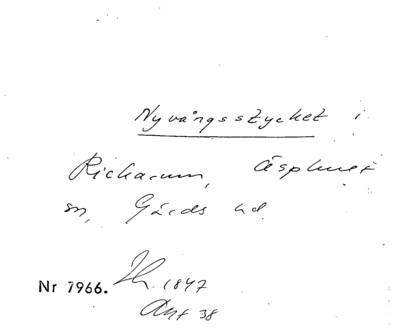 Nyvångsstycket i
Richarum, Äsphult
sn, Gärds hd
Nr 7966. 1847
Akt 38